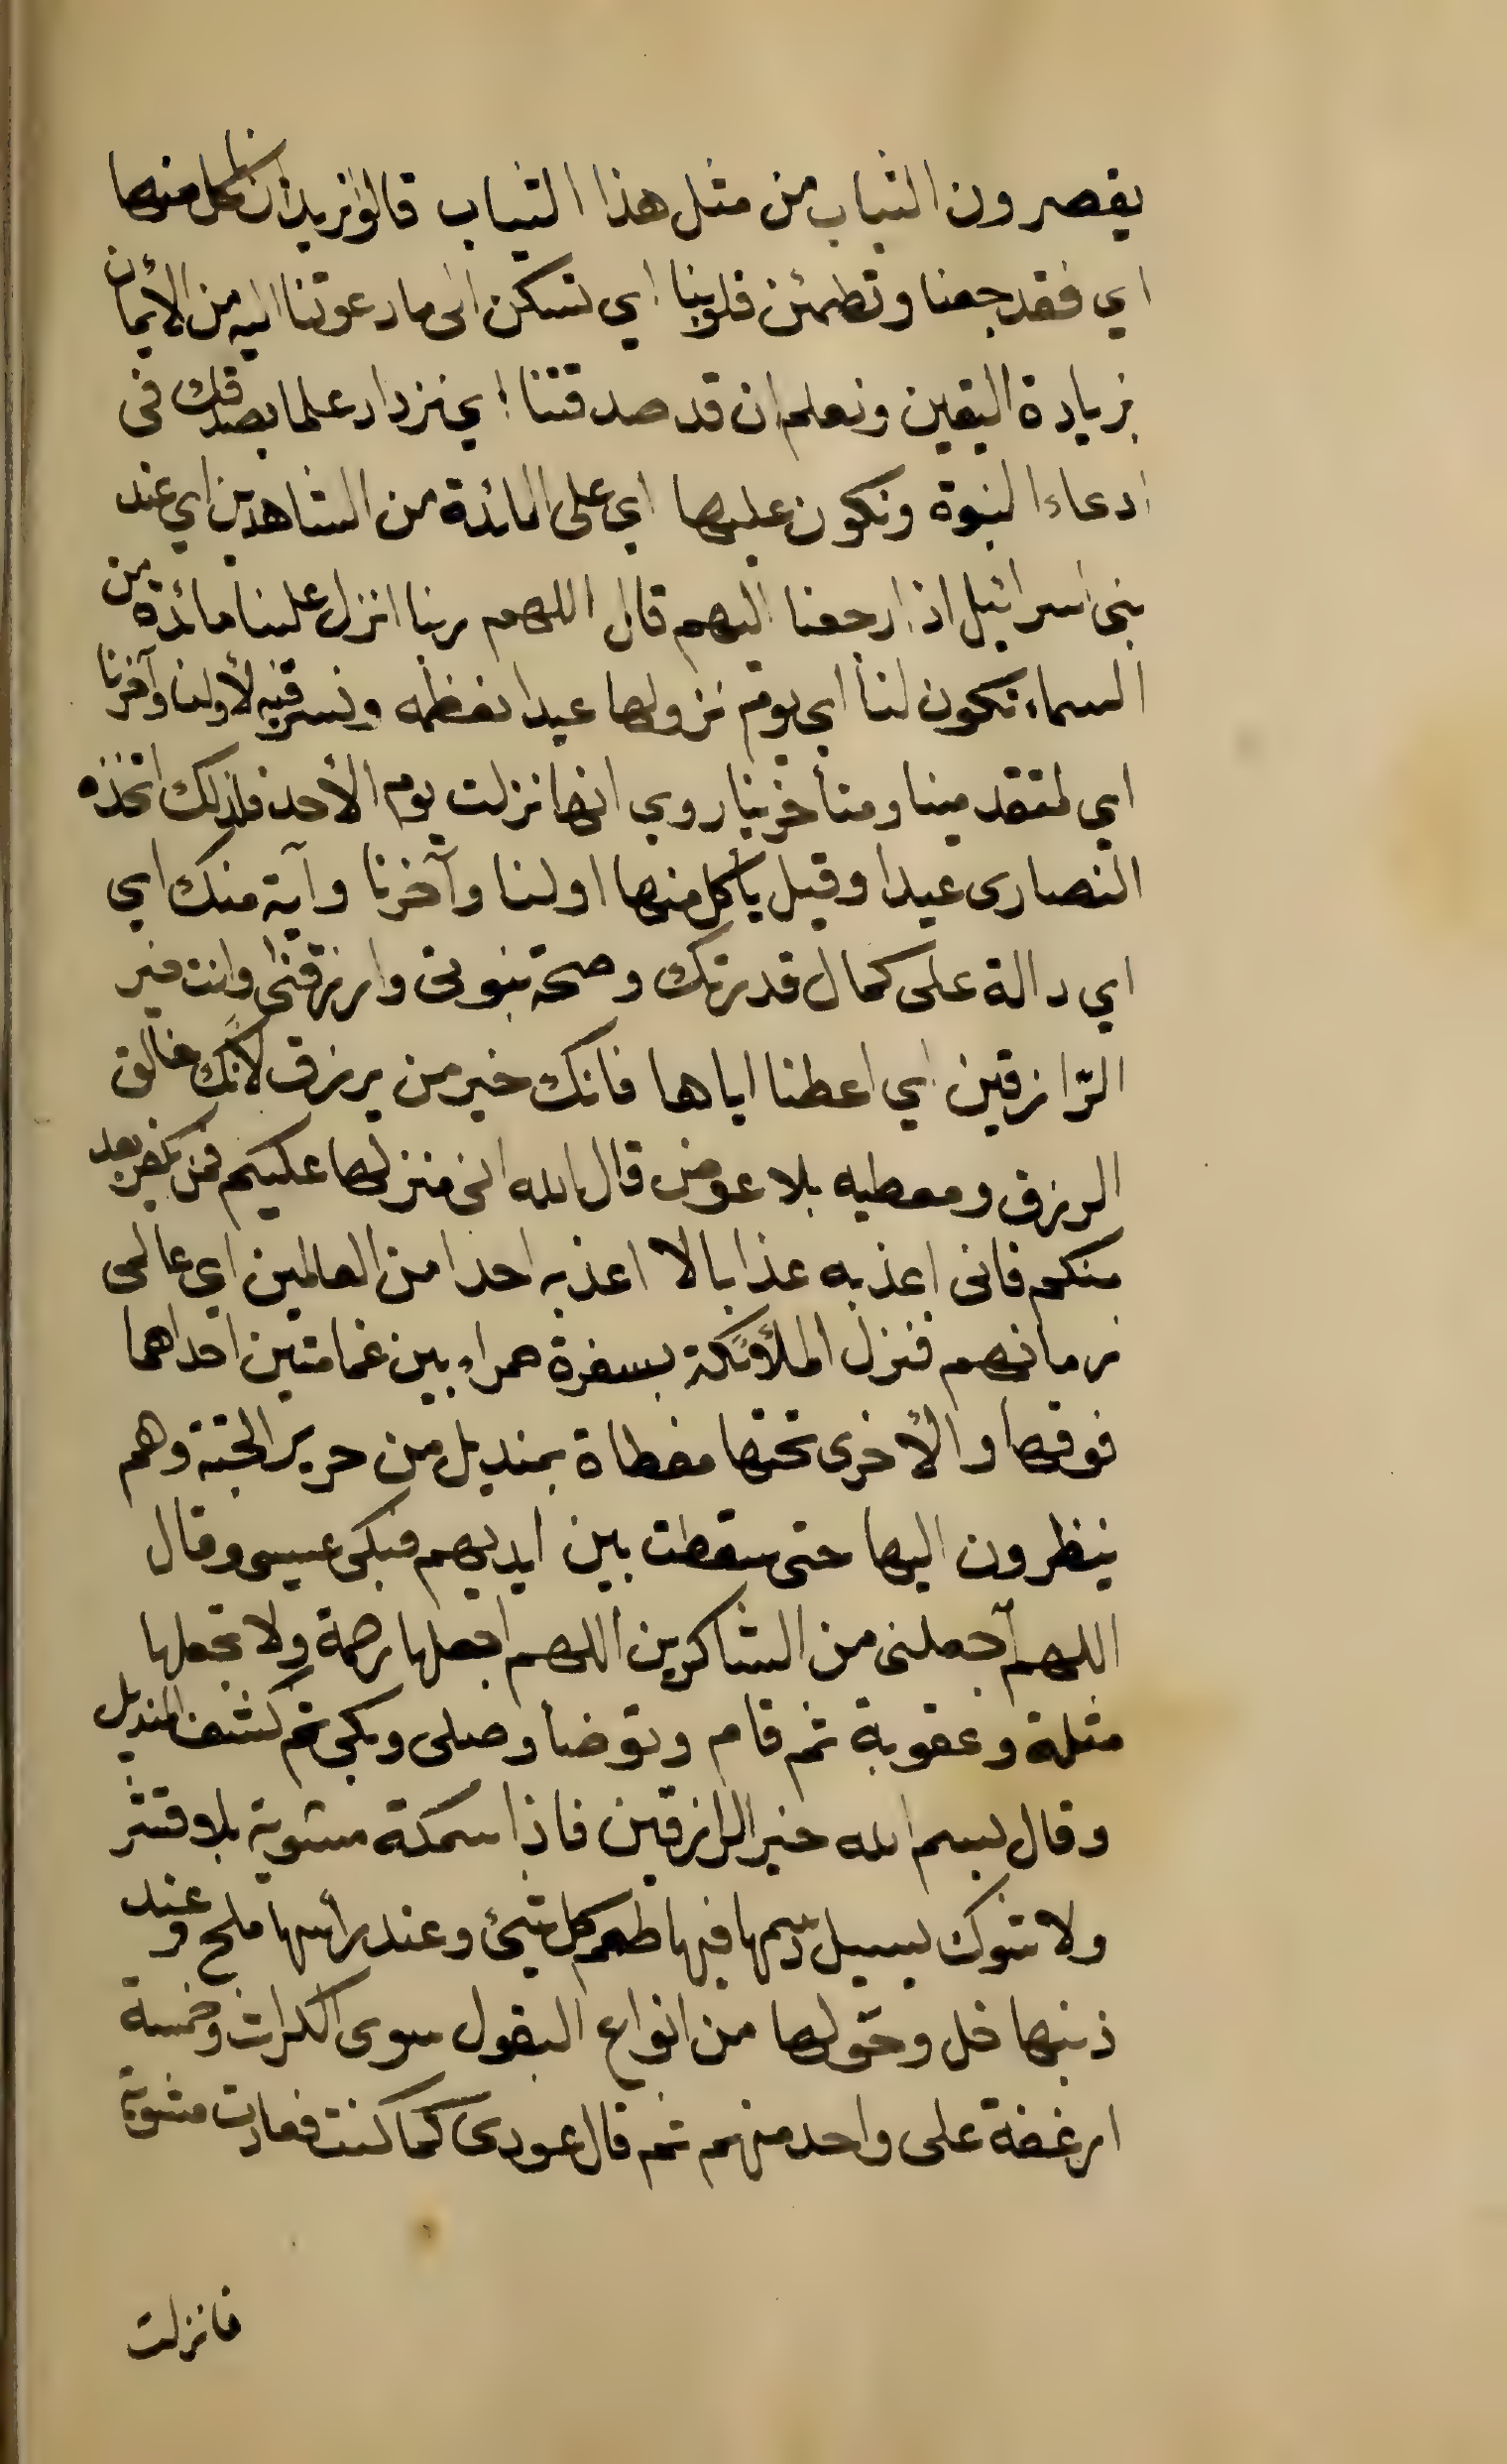 يقصرون الثياب من مثل هذا الثياب قالوا نريد ان نأكل منها
اي فقد جعنا وتطمئن قلوبنا اي تسكن الى ما دعوتنا اليه من الأيمان
بزيادة اليقين ونعلم ان قد صدقتنا اي نزداد علما بصدقك فى
ادعاء النبوة ونكون عليها اي على المائدة من الشاهدين اي عند
بنى اسرائيل اذا رجعنا اليهم قال اللهم ربنا انزل علينا مائدة من
السماء تكون لنا اي يوم نزولها عيدا نعظمه ونسر فيه لأولنا وآخرنا
اي لمتقدمينا ومتأخرينا روي انها نزلت يوم الأحد فلذلك اتخذه
النصارى عيدا وقيل يأكل منها اولنا وآخرنا وآية منك اي
اي دالة على كمال قدرتك وصحة نبوتى وارزقنا وانت خير
الرّازقين اي اعطنا اياها فانك خير من يرزق لأنك خالق
الرزق ومعطيه بلا عوض قال الله انى منزلها عليكم فمن يكفر بعد
منكم فانى اعذبه عذابا لا اعذبه احدا من العالمين اي عالمى
زمانهم فنزل الملأئكة بسفرة حمراء بين غمامتين احداهما
فوقها والأخرى تحتها مغطاة بمنديل من حرير الجنة وهم
ينظرون اليها حتى سقطت بين ايديهم فبكى عيسى وقال
اللهم آجعلنى من الشاكرين اللهم اجعلها رحمة ولا تجعلها
مثلة وعقوبة ثم قام وتوضأ وصلى وبكى ثم كشف المنديل
وقال بسم الله خير الرازقين فاذا سمكة مشوية بلا قشر
ولا شوك يسيل دسمها فيها طعم كل شئ وعند رأسها ملح وعند
ذنبها خل وحولها من انواع البقول سوى الكراث وخمسة
ارغفة على واحد منهم ثم قال عودى كما كنت فعادت مشوية
فانزلت